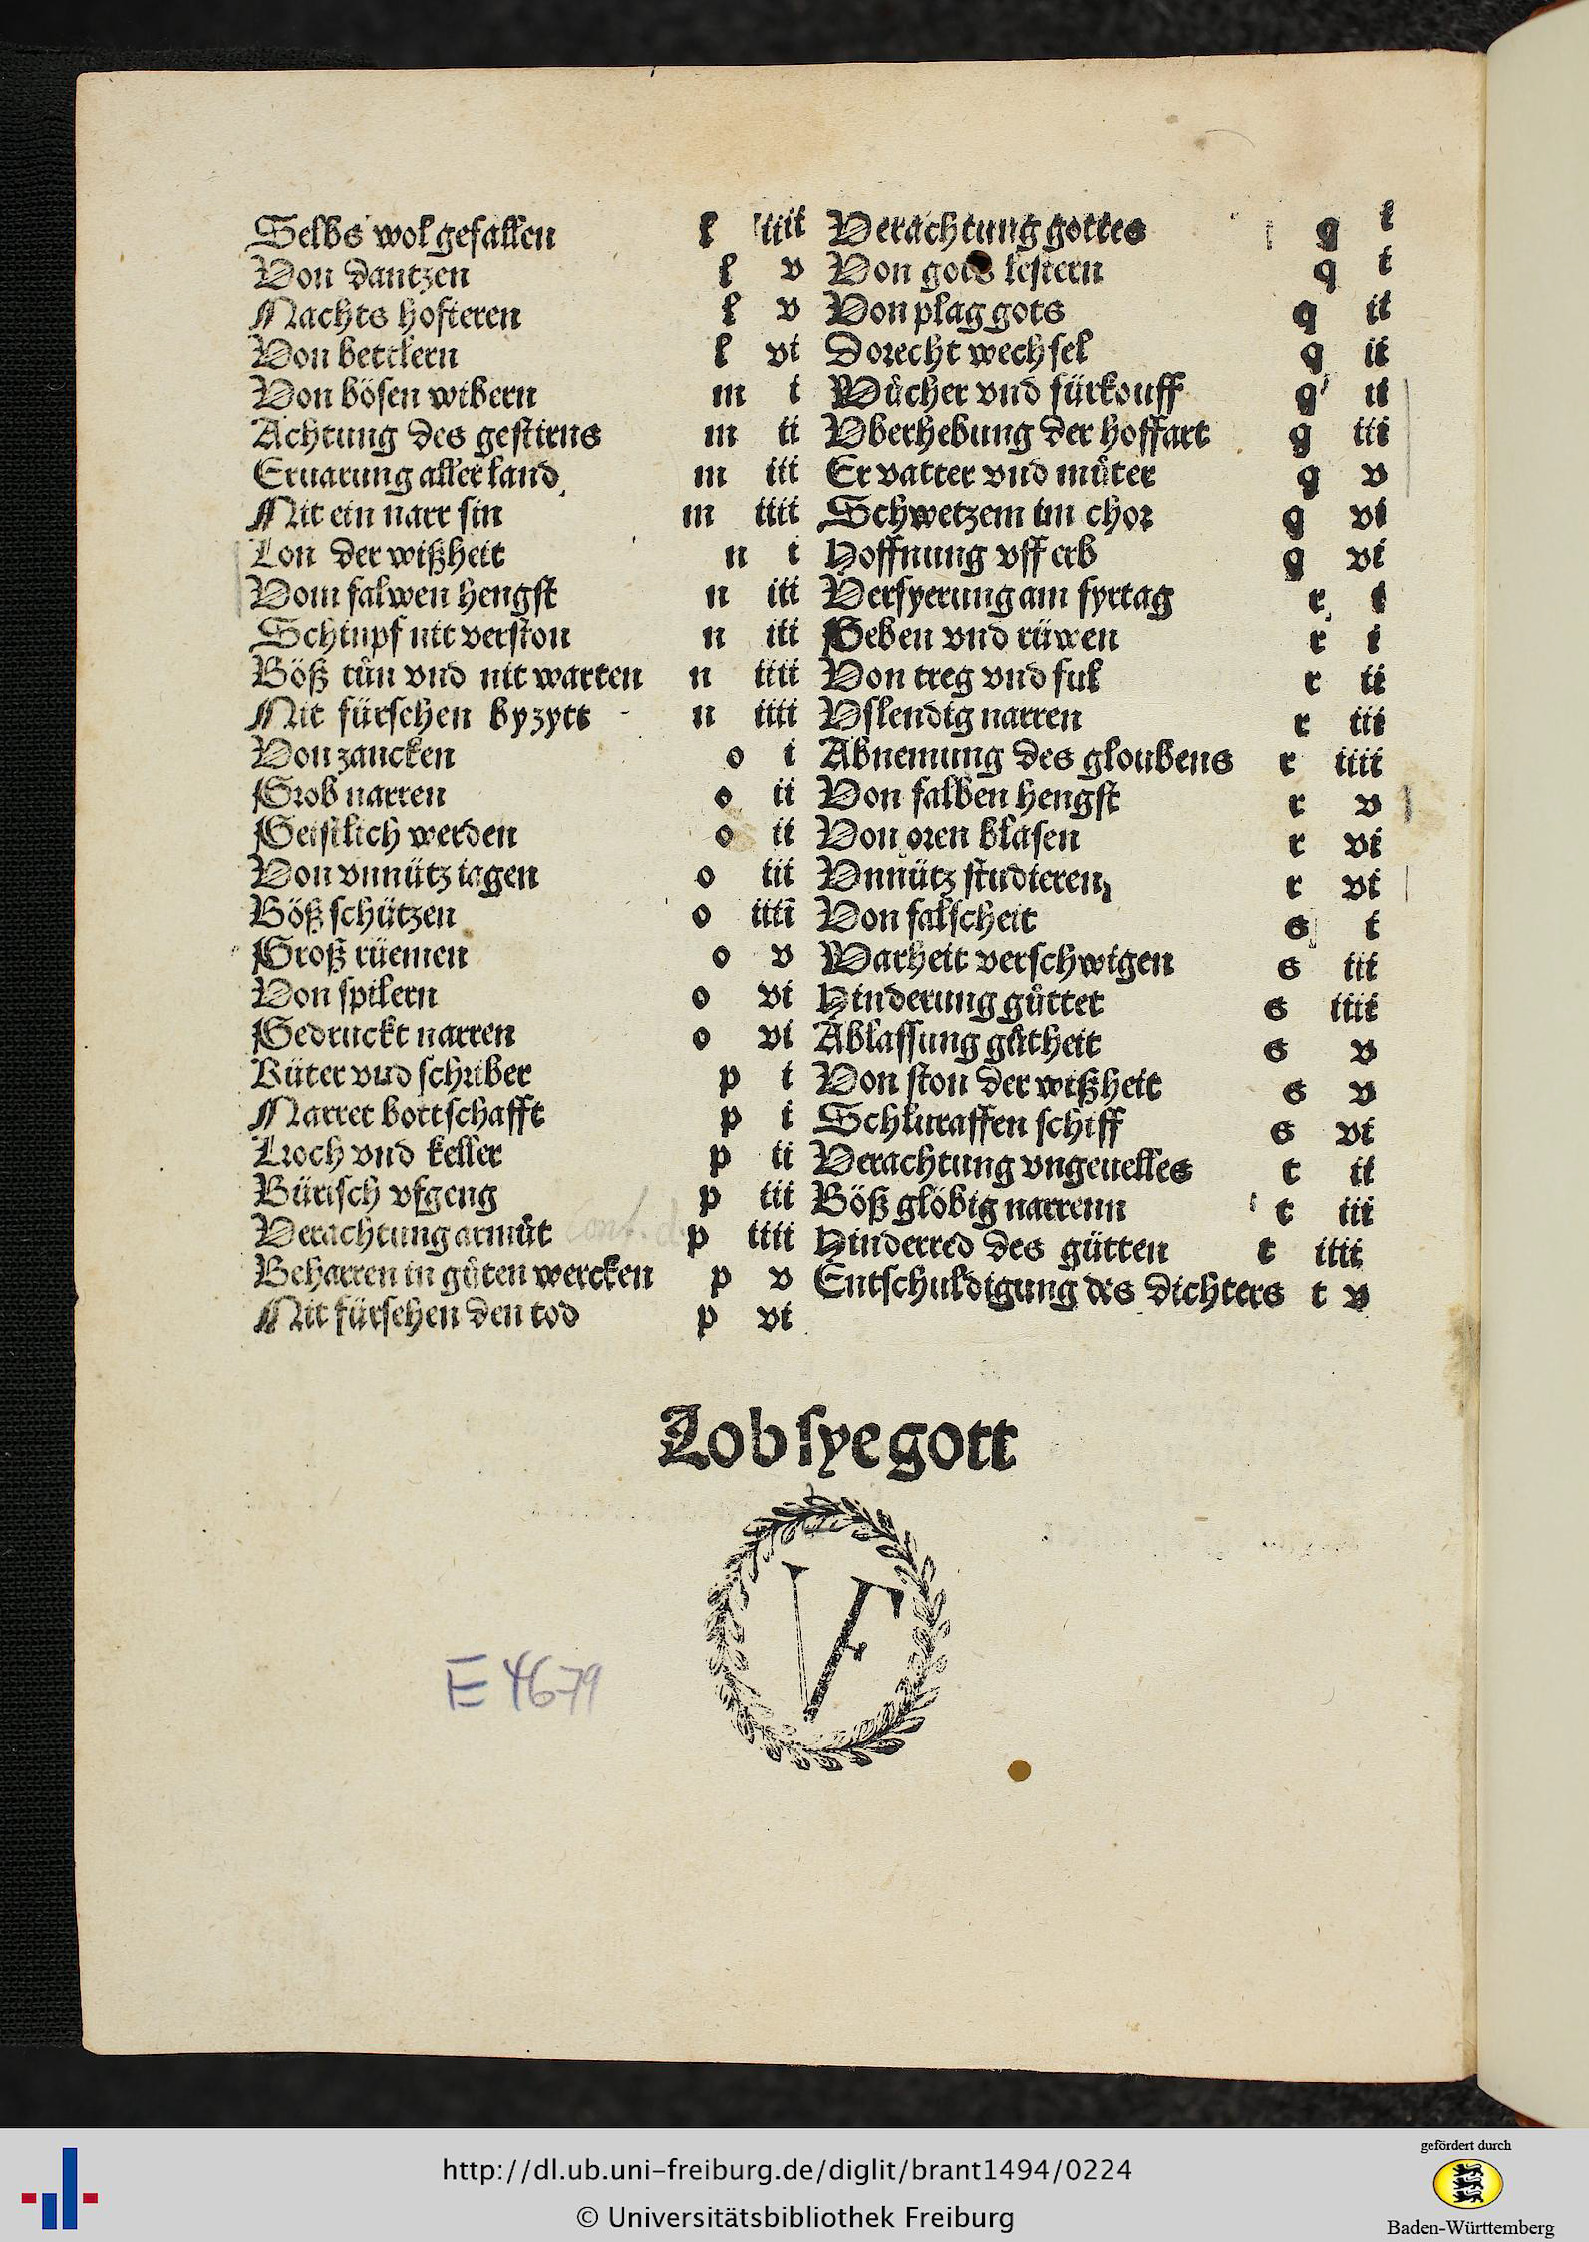 Selbs wolgefallen l iiii
Von dantzen l v
Nachts hofieren l v
Von bettlern l vi
Von bösen wibern m i
Achtung des gestirns m ii
Eruarung aller land m iii
Nit ein narr sin m iiii
Lon der wißheit n i
Vom falwen hengst n iii
Schinpf nit verston n iii
Böß tůn vnd nit warten n iiii
Nit fürschen byzytt n iiii
Von zancken o i
Grob narren o ii
Geistlich werden o ii
Von vnnütz iagen o iii
Böß schützen o iiii
Groß rüemen o v
Von spilern o vi
Gedruckt narren o vi
Rüter vnd schriber p i
Narret bottschafft p i
Kroch vnd keller p ii
Bürisch vfgeng p iii
Verachtung armůt p iiii
Beharren in gůten wercken p v
Nit fürsehen den tod p vi
Verachtung gottes q i
Von gots lestern q i
Von plag gots q ii
Dorecht wechsel q ii
Wůcher vnd fürkouff q ii
Vberhebung der hoffart q iii
Er vatter vnd můter q v
Schwetzem im chor q vi
Hoffnung vff erb q vi
Versyerung am fyrtag r i
Geben vnd rüwen r i
Von treg vnd ful r ii
Vslendig narren r iii
Abnemung des gloubens r iiii
Von falben hengst r v
Von oren blasen r vi
Vnnütz studieren r vi
Von falscheit s i
Warheit verschwigen s iii
Hinderung gůttet s iiii
Ablassung gůtheit s v
Von ston der wißheit s v
Schluraffen schiff s vi
Verachtung vngeuelles t ii
Böß glöbig narrenn t iii
Hinderred des gütten t iiii
Entschuldigung des dichters t v
Lob sye gott
VF
E 4679
http://dl.ub.uni-freiburg.de/diglit/brant1494/0224
© Universitätsbibliothek Freiburg
gefördert durch
Baden-Württemberg